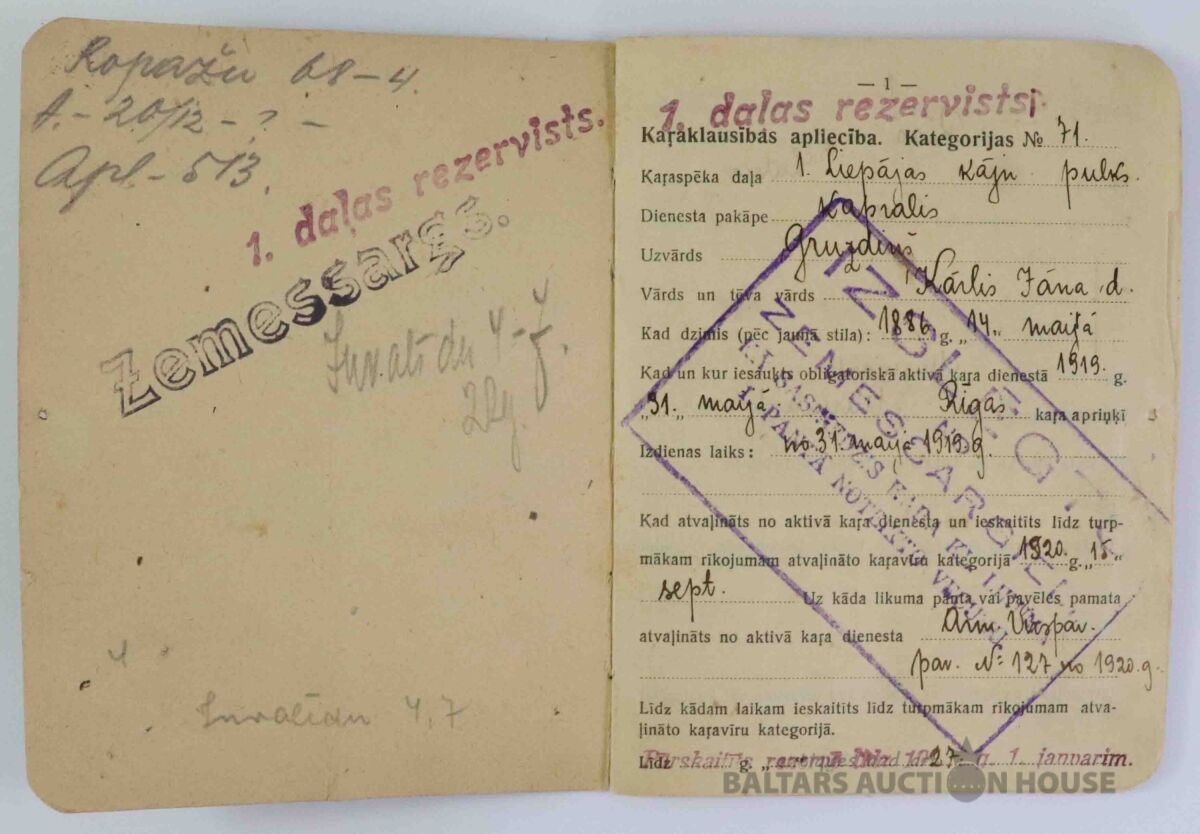 Ropažu 68-4.
A.- 20/12 - ? -
Apl.- 513.
1. daļas rezervists.
Zemessargs.
Invalīdu 4-7.
Invalīdu 4,7
— 1 —
1. daļas rezervists.
Kaŗaklausības apliecība. Kategorijas № 71.
Kaŗaspēka daļa 1. Liepājas kājn. pulks.
Dienesta pakāpe Kaprālis
Uzvārds Gruzdiņš
Vārds un tēva vārds Kārlis Jāņa d.
Kad dzimis (pēc jaunā stila): 1886. g. „14„ maijā
Kad un kur iesaukts obligatoriskā aktivā kaŗa dienestā 1919. g.
„31.„ maijā Rīgas kaŗa apriņķī
Izdienas laiks: no 31. maija 1919. g.
Kad atvaļināts no aktivā kaŗa dienesta un ieskaitīts līdz turp-
mākam rīkojumam atvaļināto kaŗavīru kategorijā 1920. g. „15„
sept. Uz kāda likuma panta vai pavēles pamata
atvaļināts no aktivā kaŗa dienesta Arm. Virspav.
pav. №: 127 no 1920. g.
Līdz kādam laikam ieskaitīts līdz turpmākam rīkojumam atva-
ļināto kaŗavīru kategorijā.
Līdz g. „
Pārskaitīts rezervē līdz 1927. g. 1. janvarim.
IZSLĒGTS
NO
ZEMESSARGIEM
PANTĀ NOTEIKTO VECUMU
BALTARS AUCTION HOUSE